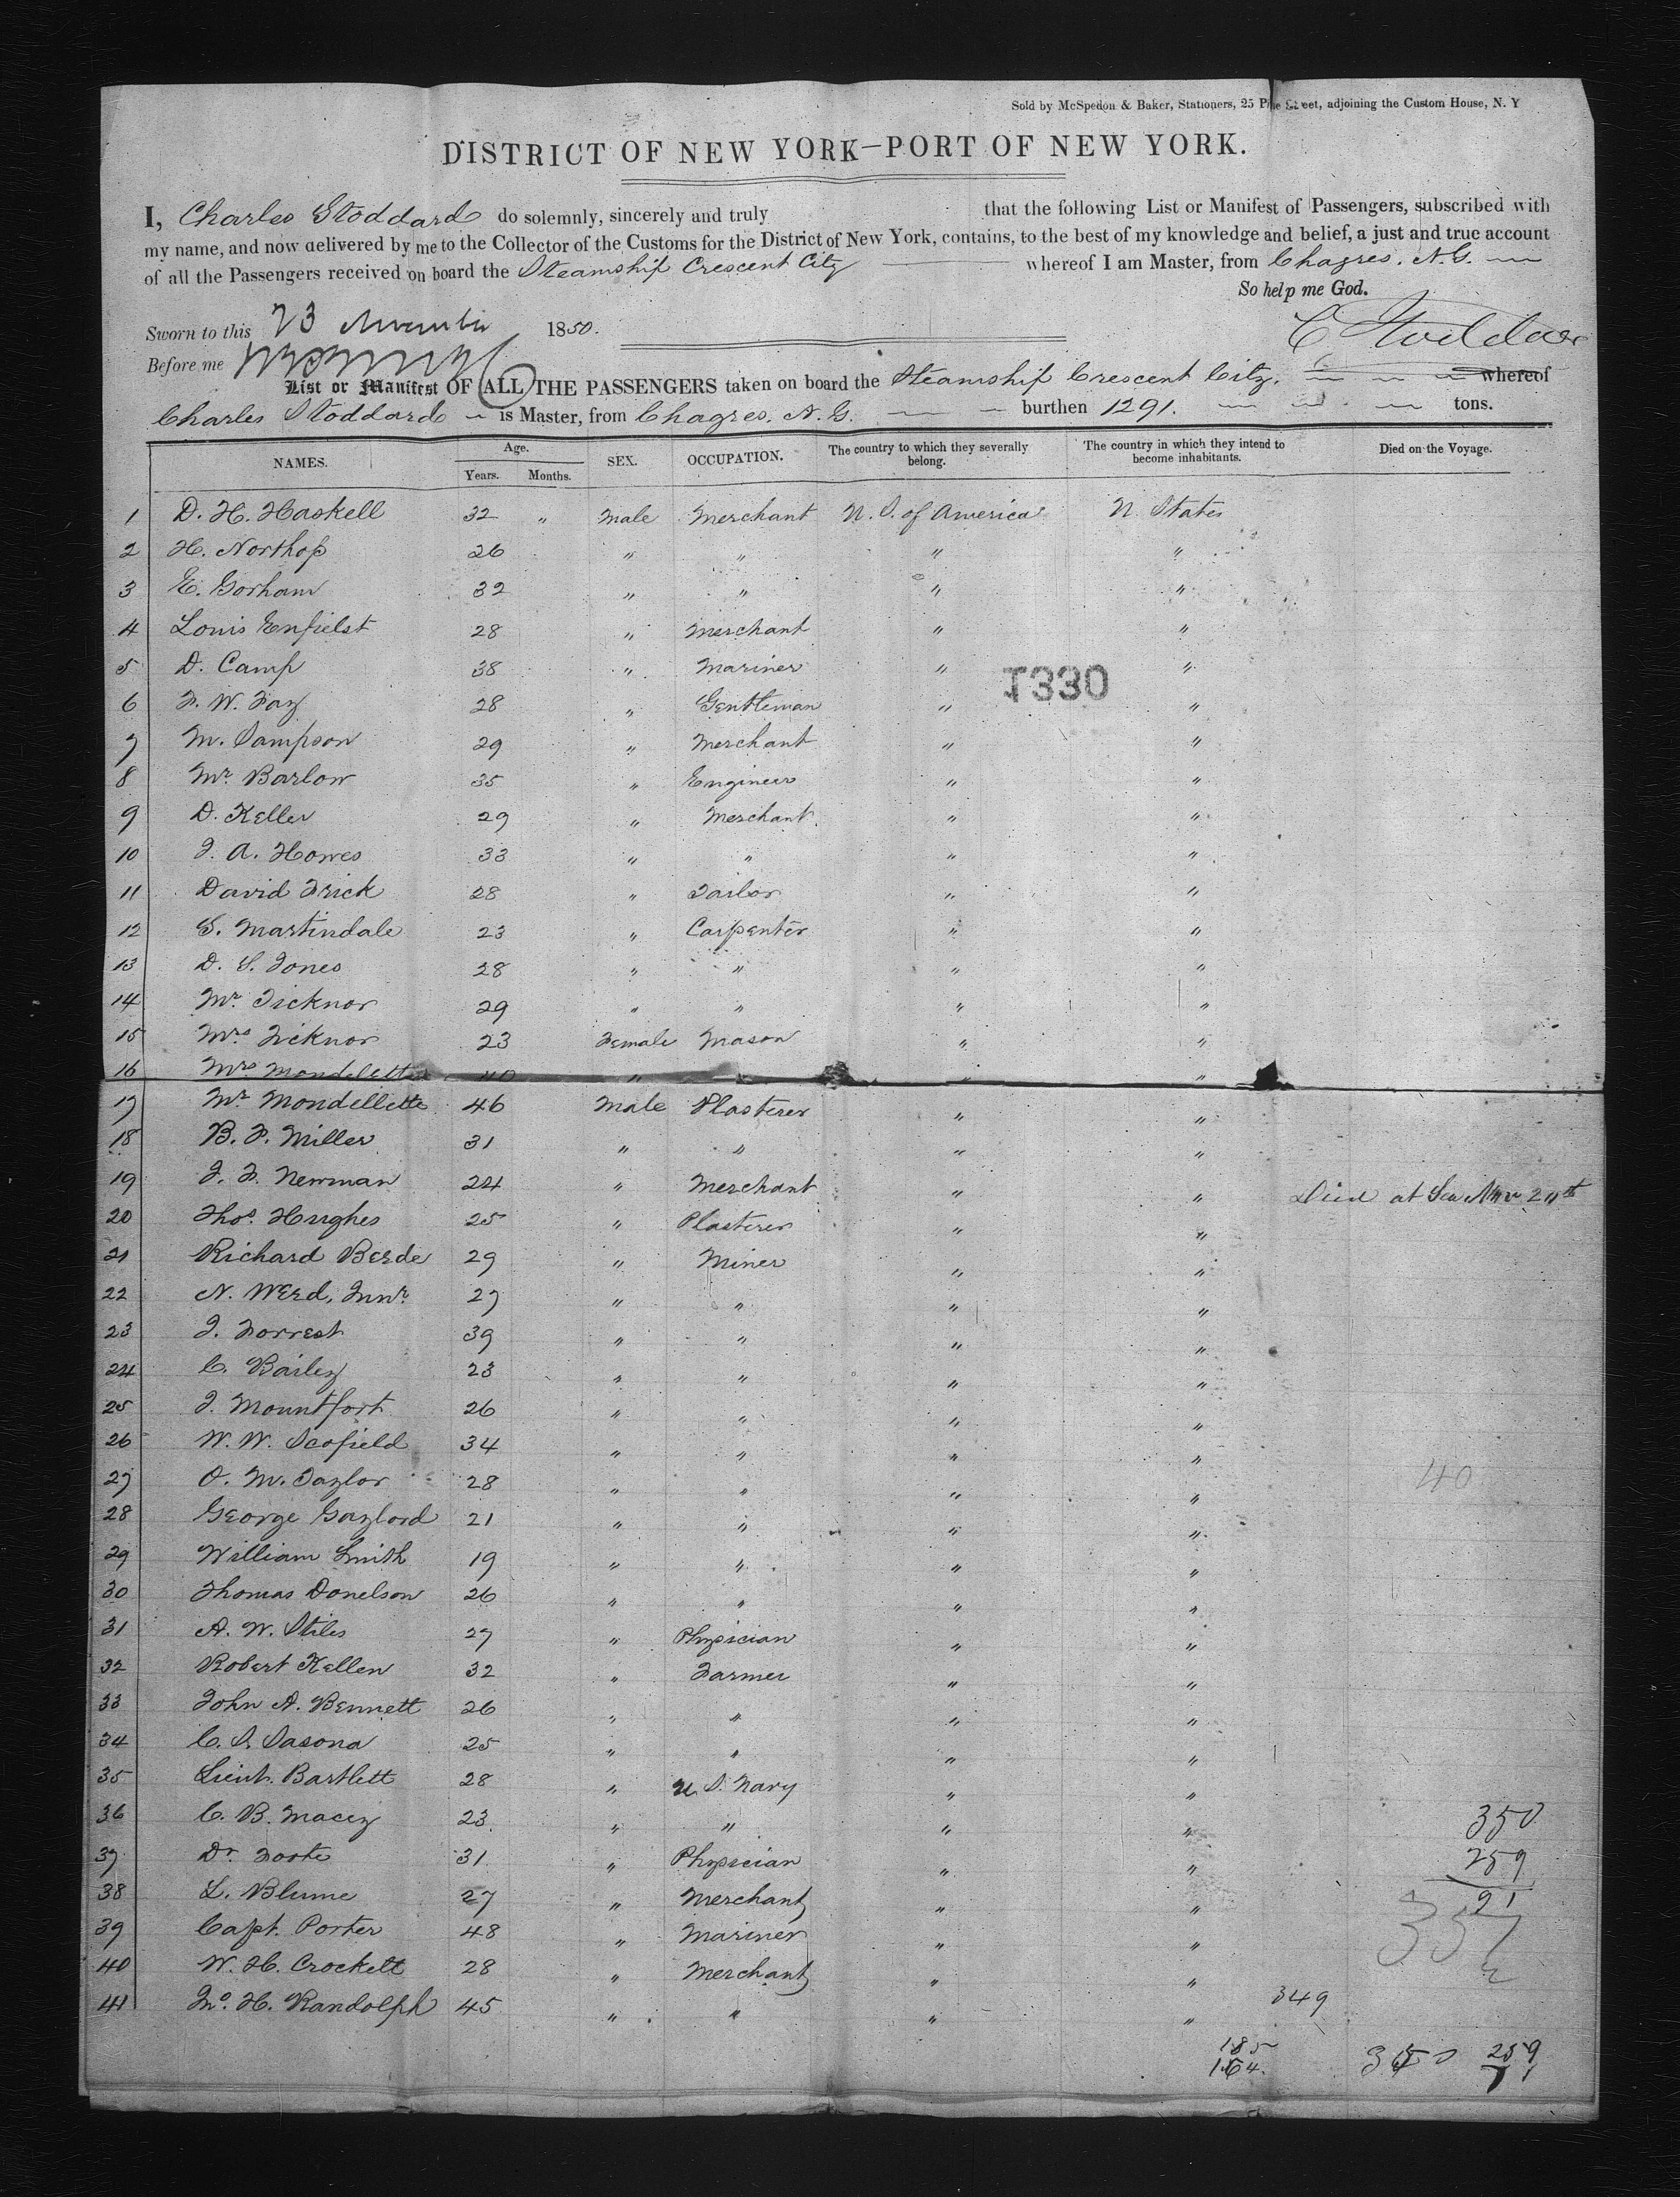 Sold by McSpedon & Baker, Stationers, 25 Pine Street, adjoining the Custom House, N. Y
DISTRICT OF NEW YORK—PORT OF NEW YORK.
I, Charles Stoddard do solemnly, sincerely and truly that the following List or Manifest of Passengers, subscribed with
my name, and now delivered by me to the Collector of the Customs for the District of New York, contains, to the best of my knowledge and belief, a just and true account
of all the Passengers received on board the Steamship Crescent City whereof I am Master, from Chagres. N.G.
So help me God.
Sworn to this 23 1850.
C Stoddard
Before me
List or Manifest OF ALL THE PASSENGERS taken on board the Steamship Crescent City. whereof
Charles Stoddard is Master, from Chagres. N.G. burthen 1291. tons.
NAMES. Age. Years. Months. SEX. OCCUPATION. The country to which they severally belong. The country in which they intend to become inhabitants. Died on the Voyage.
1 D. H. Haskell 32 " Male Merchant U. S. of America U. States
2 H. Northop 26 " " " "
3 E. Gorham 32 " " " "
4 Louis Enfielst 28 " Merchant " "
5 D. Camp 38 " Mariner " "
1330
6 F. W. Fay 28 " Gentleman " "
7 M. Sampson 29 " Merchant " "
8 Mr. Barlow 35 " Engineer " "
9 D. Keller 29 " Merchant " "
10 J. A. Howes 33 " " " "
11 David Frick 28 " Tailor " "
12 S. Martindale 23 " Carpenter " "
13 D. S. Jones 28 " " " "
14 Mr. Ticknor 29 " " " "
15 Mrs. Ticknor 23 Female Mason " "
16 Mrs Mondellette 40 " " " "
17 Mr. Mondellette 46 Male Plasterer " "
18 B. F. Miller 31 " " " "
19 J. F. Newman 24 " Merchant " " Died at Sea Nov 20th
20 Thos. Hughes 25 " Plasterer " "
21 Richard Berde 29 " Miner " "
22 N. Weed, Junr. 27 " " " "
23 J. Forrest 39 " " " "
24 C. Bailey 23 " " " "
25 J. Mountfort 26 " " " "
26 W. W. Scofield 34 " " " "
27 O. M. Taylor 28 " " " " 40
28 George Gaylord 21 " " " "
29 William Smith 19 " " " "
30 Thomas Donelson 26 " " " "
31 A. W. Stiles 27 " Physician " "
32 Robert Kellen 32 " Farmer " "
33 John A. Bennett 26 " " " "
34 C. S. Sasona 25 " " " "
35 Lieut. Bartlett 28 " U. S. Navy " "
36 C. B. Macey 23 " " " " 350
37 Dr. Foote 31 " Physician " " 259
38 L. Blume 27 " Merchant " " 91
39 Capt. Porter 48 " Mariner " " 357
40 W. H. Crockett 28 " Merchant " " 2
41 Jno. H. Randolph 45 " " " " 349
185 350 259
164.